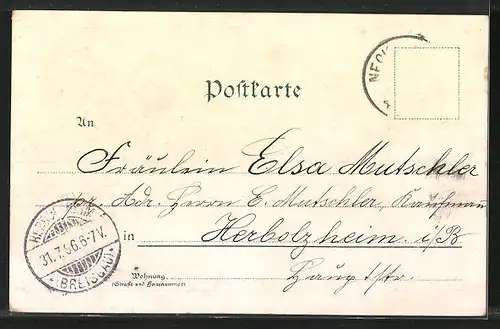 Postkarte
NECK
An
Fräulein Elsa Mutschler
pr. Adr. Herrn E. Mutschler, Kaufmann
in Herbolzheim i/B
Hauptstr.
31.7. 6-7V.
(BREISGAU)
Wohnung
(Straße und Hausnummer)